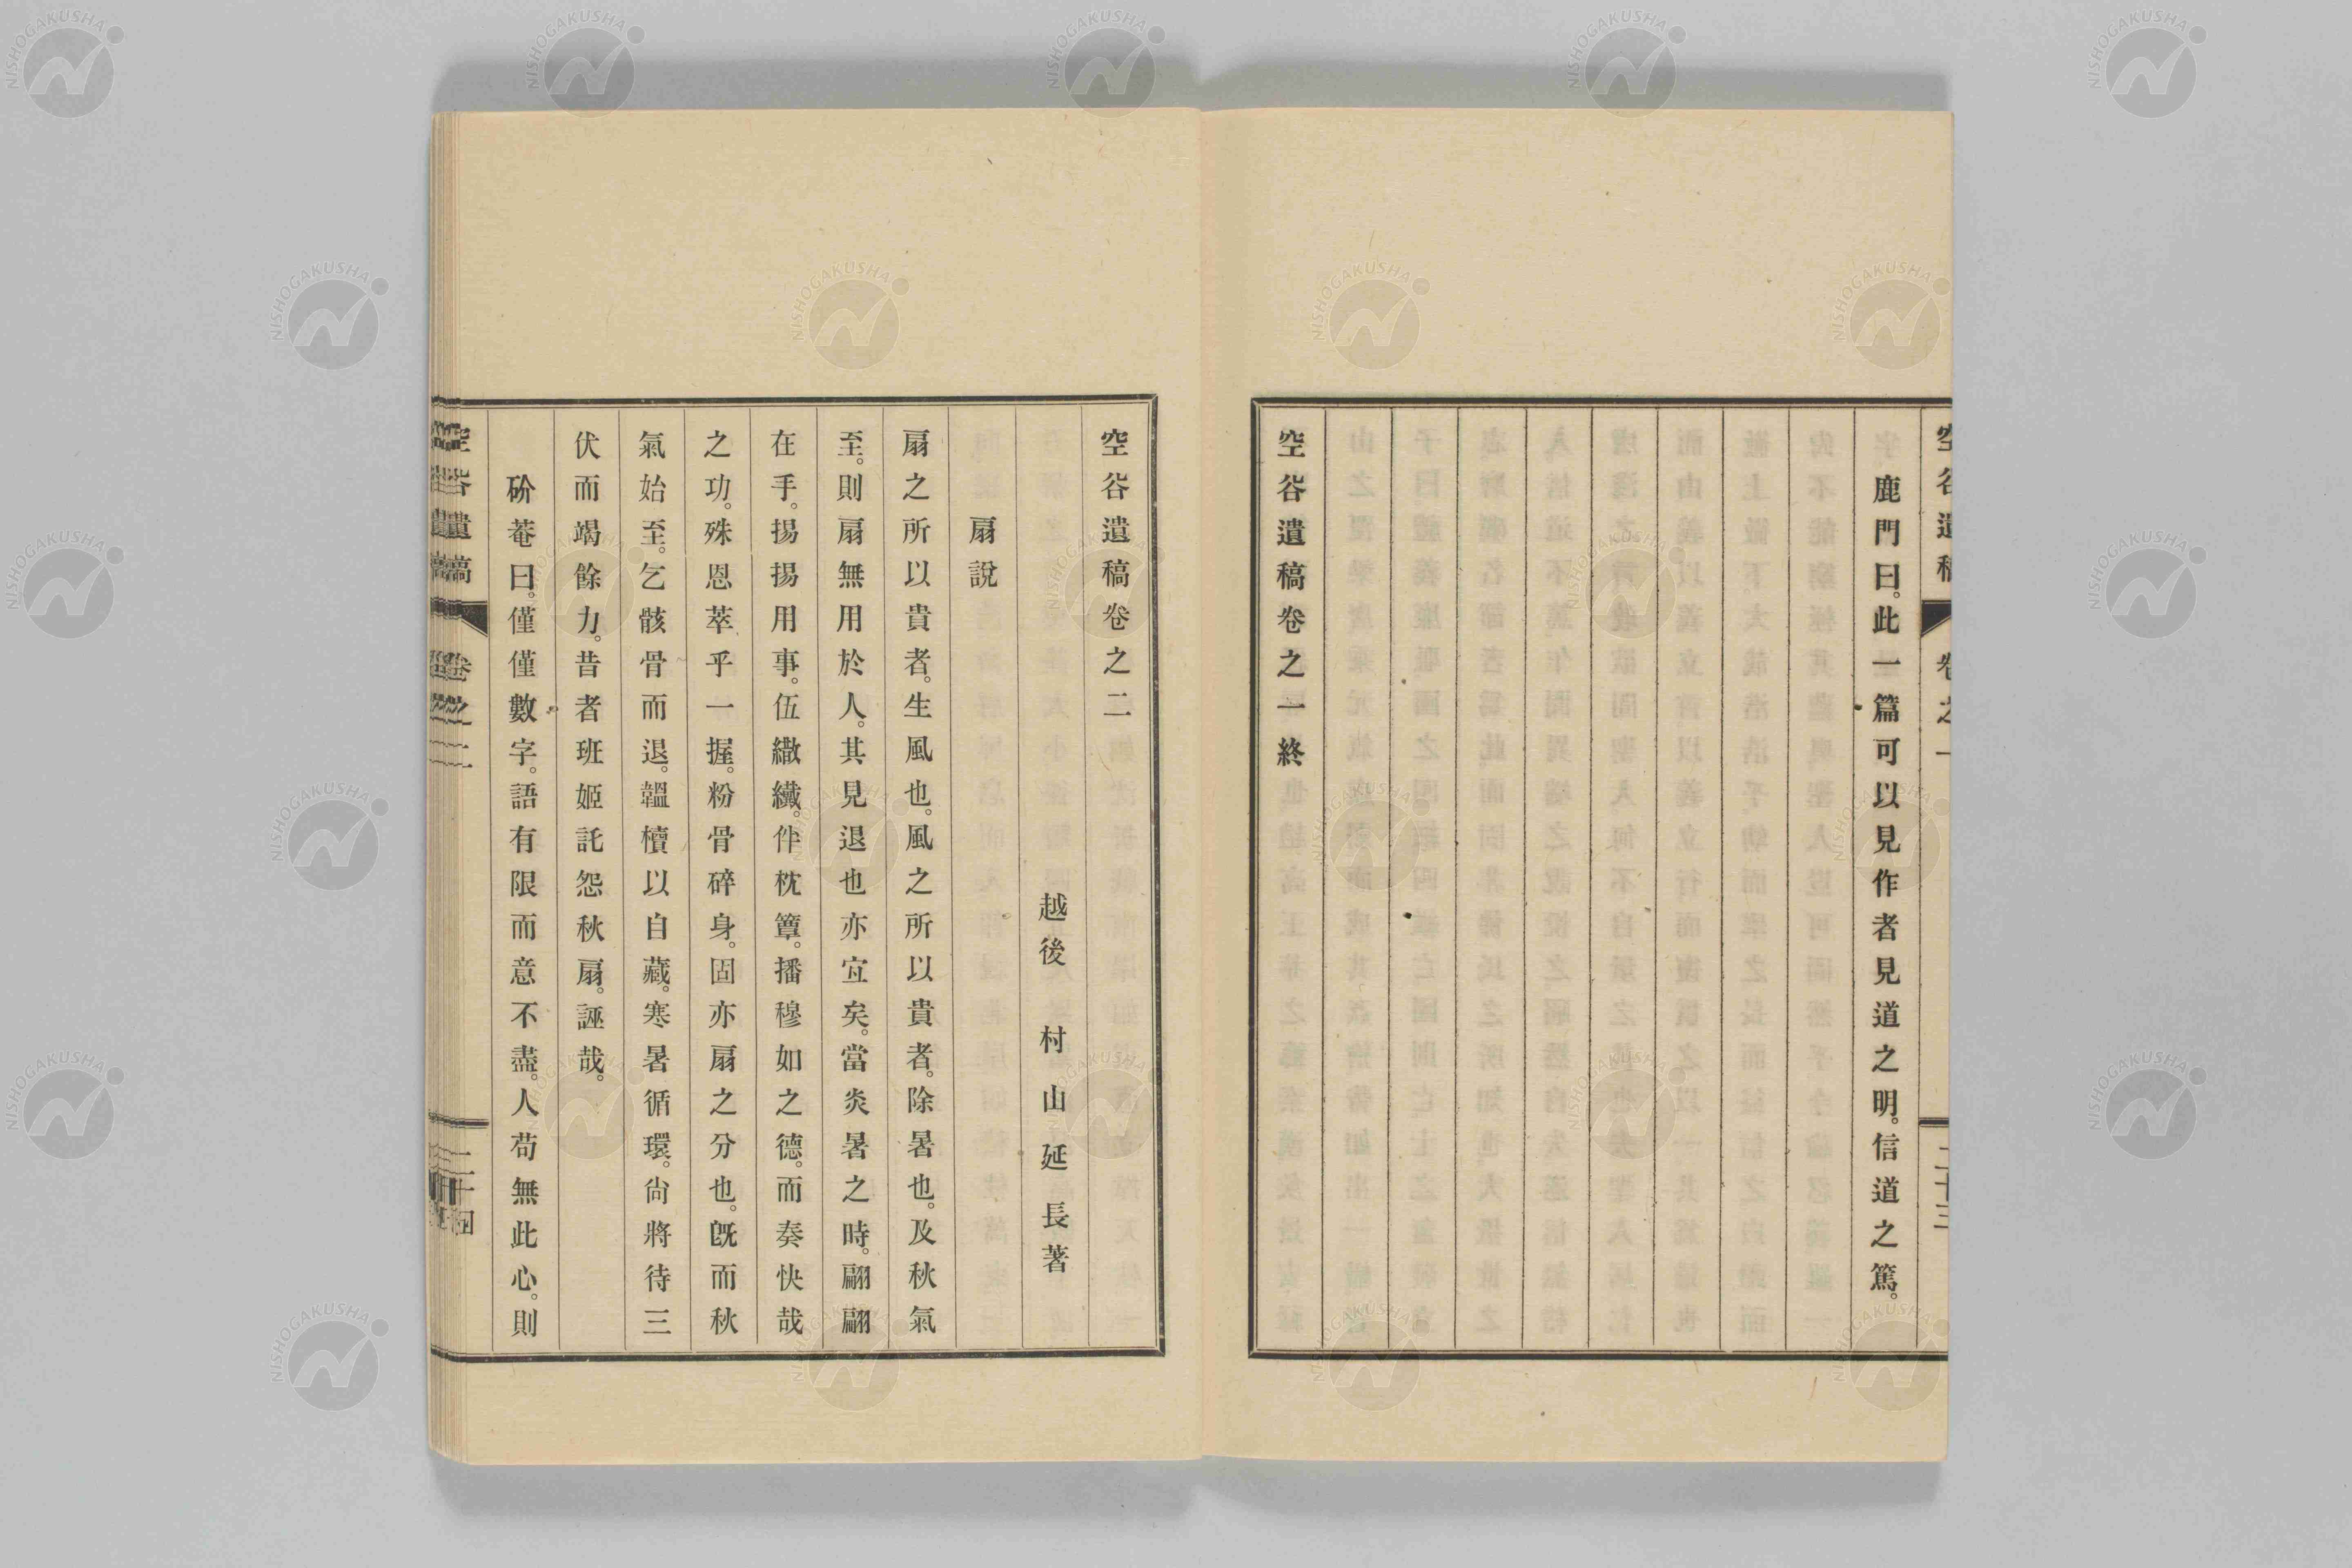 鹿門曰。此一篇可以見作者見道之明。信道之篤。
空谷遺稿卷之一終
空谷遺稿卷之二
越後 村山延長著
扇說
扇之所以貴者。生風也。風之所以貴者。除暑也。及秋氣
至。則扇無用於人。其見退也亦宜矣。當炎暑之時。翩翩
在手。揚揚用事。伍繖纎。伴枕簟。播穆如之德。而奏快哉
之功。殊恩萃乎一握。粉骨碎身。固亦扇之分也。既而秋
氣始至。乞骸骨而退。韞櫝以自藏。寒暑循環。尙將待三
伏而竭餘力。昔者班姬託怨秋扇。誣哉。
砎菴曰。僅僅數字。語有限而意不盡。人苟無此心。則
空谷遺稿 卷之二 二十四
NISHOGAKUSHA